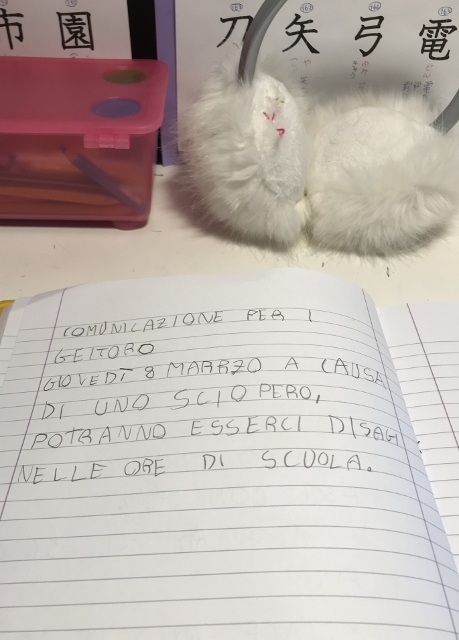 市 園 刀 矢 弓 電
COMUNICAZIONE PER I
GEITORO
GIOVEDÌ 8 MARRZO A CAUSA
DI UNO SCIOPERO,
POTRANNO ESSERCI DISAGI
NELLE ORE DI SCUOLA.